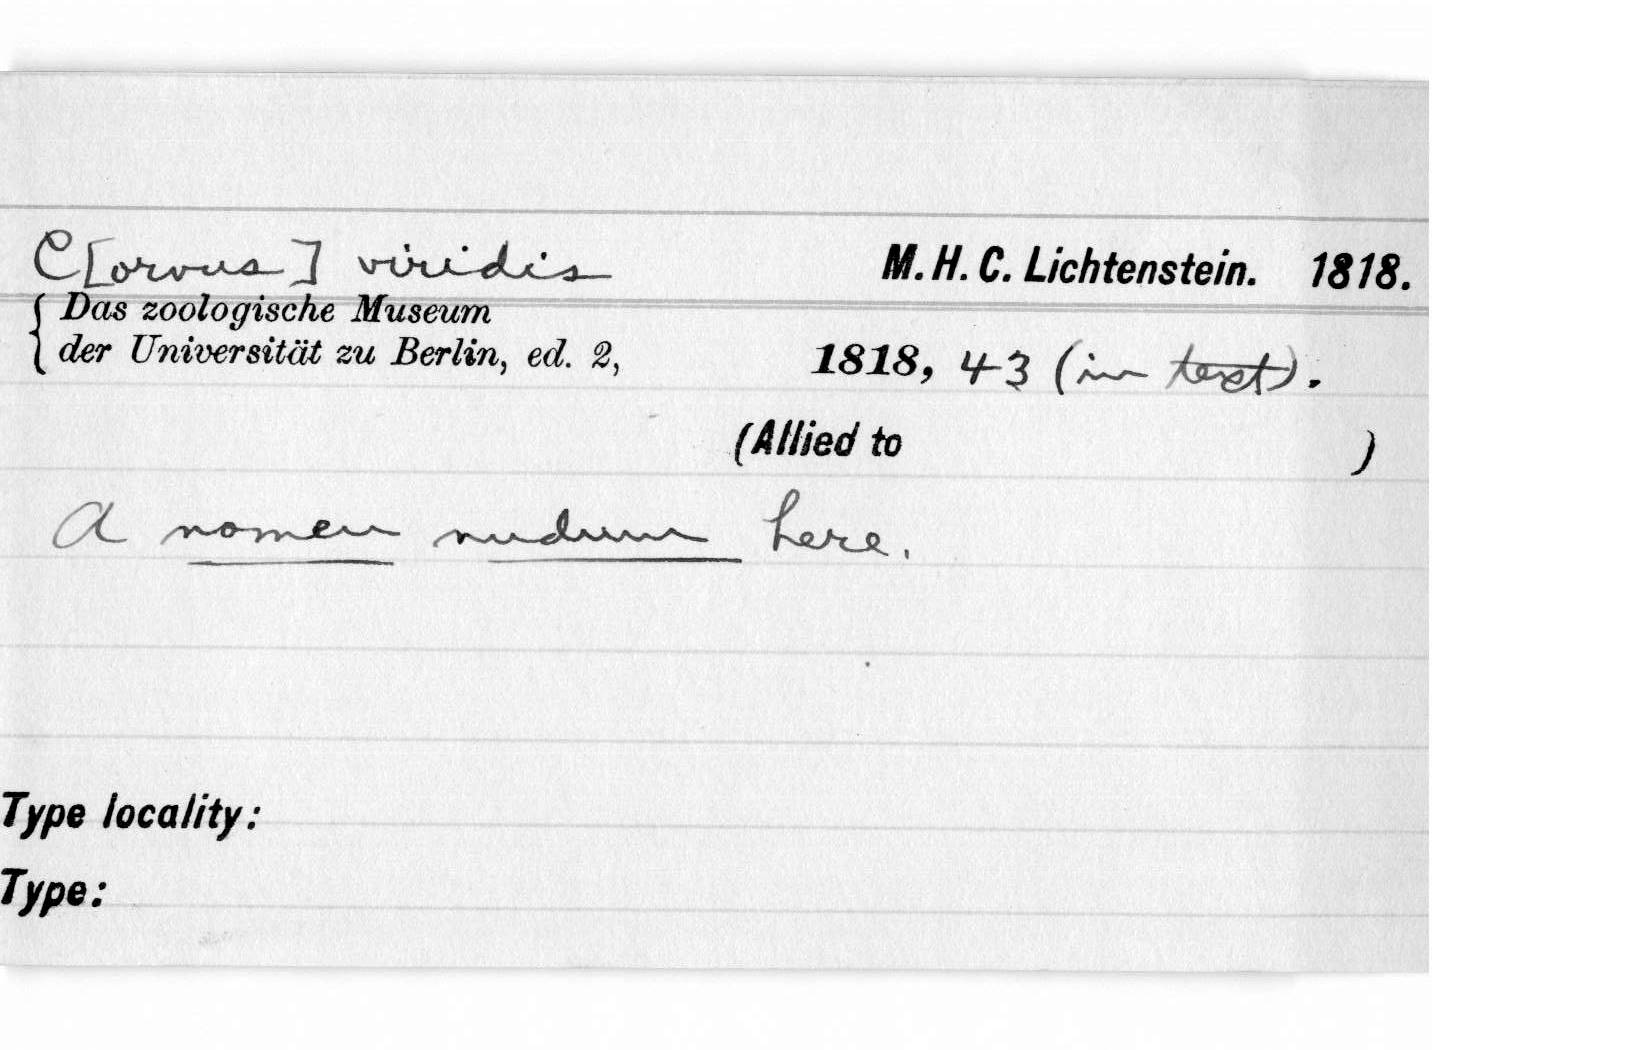 C[orvus] viridis M. H. C. Lichtenstein. 1818.
{ Das zoologische Museum
der Universität zu Berlin, ed. 2, 1818, 43 (in text).
(Allied to )
A nomen nudum here.
Type locality:
Type: